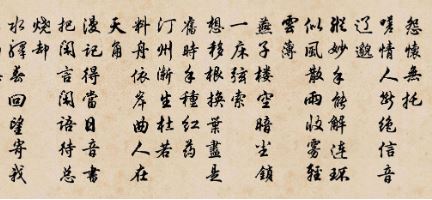 怨懷無托
嗟情人斷絕信音
遼邈
縱妙手能解連環
似風散雨收霧輕
雲薄
燕子樓空暗塵鎖
一床弦索
想移根換葉盡是
舊時手種紅藥
汀州漸生杜若
料舟依岸曲人在
天角
漫記得當日音書
把閑言閑語待總
燒却
水驛春回望寄我